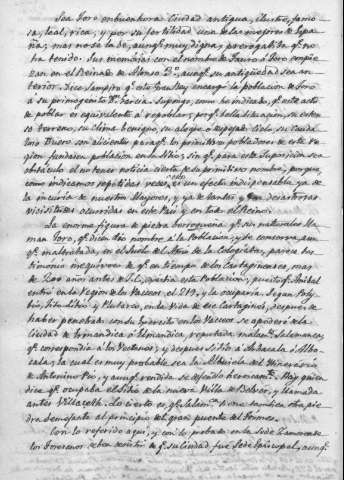 Sea Toro enbuenhora Ciudad antigua, ilustre, famo-
sa, leal, rica, y por su fertilidad una de las mejores de Espa-
ña; mas no se la dé, aunq.e muy digna, prerogativa q.e no
ha tenido. Sus memorias con el nombre de Tauro ó Toro empie-
zan en el Reinado de Alonso 3.º, aunq.e su antigüedad sea an-
terior. Dice Sampiro q.e este Rey encargó la poblacion de Toro
á su primogenito D.n Garcia. Supongo, como he indicado, q.e este acto
de poblar es equivalente á repoblar, pr.q.e bella situacion, su exten-
so terreno, su clima benigno, su alegre ó despejado Cielo, su Cauda-
loso Duero son alicientes para q.e los primitivos pobladores de este re-
gion fundasen poblacion en tal sitio, sin q.e para esta suposicion sea
obstáculo el no tener noticia cierta de su primitivo nombre, porque,
como indicamos repetidas veces, es un efecto indispensable ya de
la incuria de nuestros Mayores, y ya de tantas y tan desastrosas
vicisitudes ocurridas en este País y en todo el Reino.
La enorme figura de piedra berroqueña q.e sus naturales lla-
man Toro, q.e dicen dió nombre á la Poblacion, y se conserva, aun-
q.e maltratada, en el suelo del Atrio de la Colegiata, parece tes-
timonio inequivoco de q.e en tiempo de los Cartagineses, mas
de 200 años antes de J.C., existia esta Poblacion, puesto q.e Anibal
entró en la Region de los Vaceos el 219, y la ocuparia. Segun Poly-
bio, Tito Libio y Plutarco, en la vida de ese Cartaginés, despues de
haber penetrado con su Exercito entre Vaceos se apoderó de la
Ciudad de Hermandica ó Elmandica, reputada realm.te Salamanca,
q.e correspondia á los Vectones; y despues sitió á Arbacala ó Albo-
cala, la cual es muy probable sea la Albucela del Itinerario
de Antonino Pio, y aunq.e rendida se defendió heroicam.te. Hay quien
dice q.e ocupaba el sitio de la nueva Villa de Belver, y llamada
antes Villacelli. Lo cierto es, q.e Salam.ca tiene tambien otra pie-
dra semejante al principio del gran puente del Tormes.
Con lo referido aquí, y con lo probado en la Sede Zamorense
los Toresanos deben desistir de q.e su Ciudad fue Sede Episcopal, aunq.e